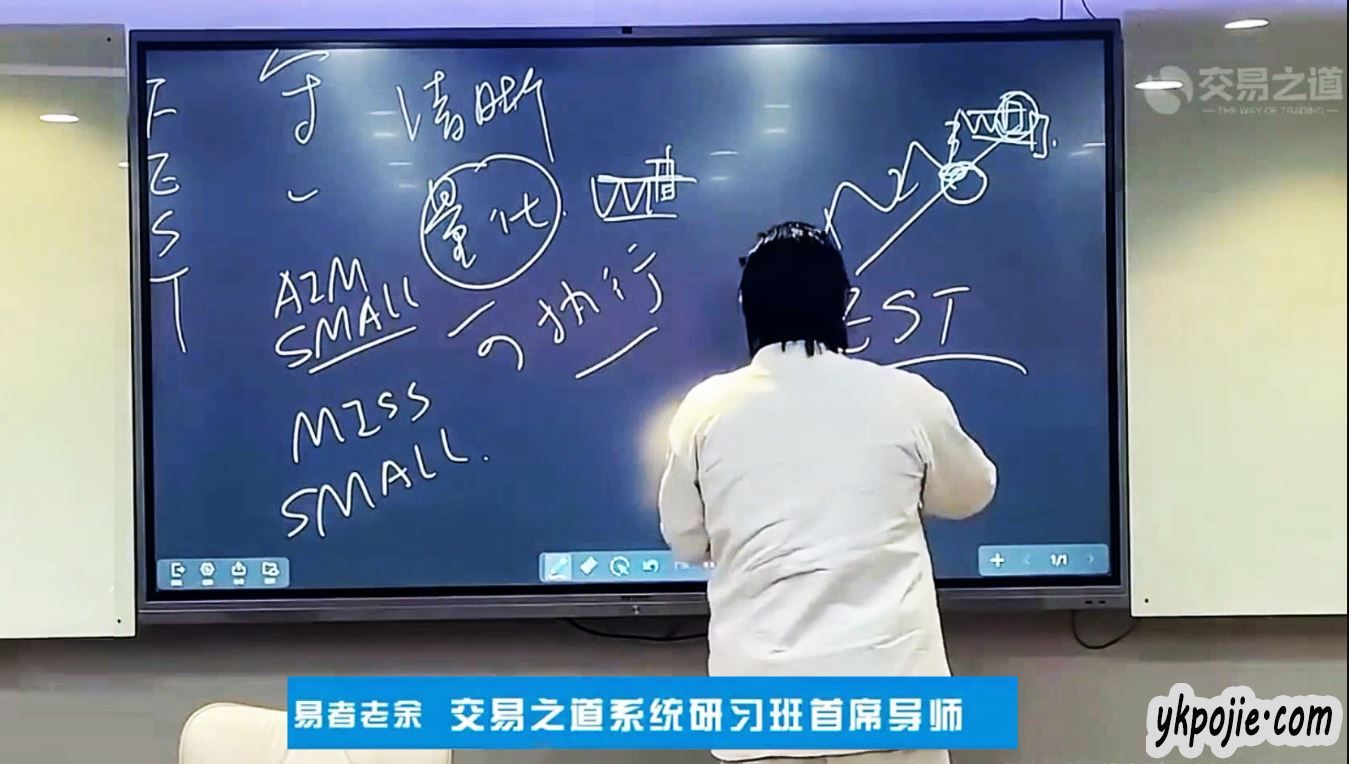 交易之道
THE WAY OF TRADING
T
E
S
T
清晰
量化
可执行
AIM
SMALL
MISS
SMALL.
EST
1/1
易者老余 交易之道系统研习班首席导师
ykpojie.com